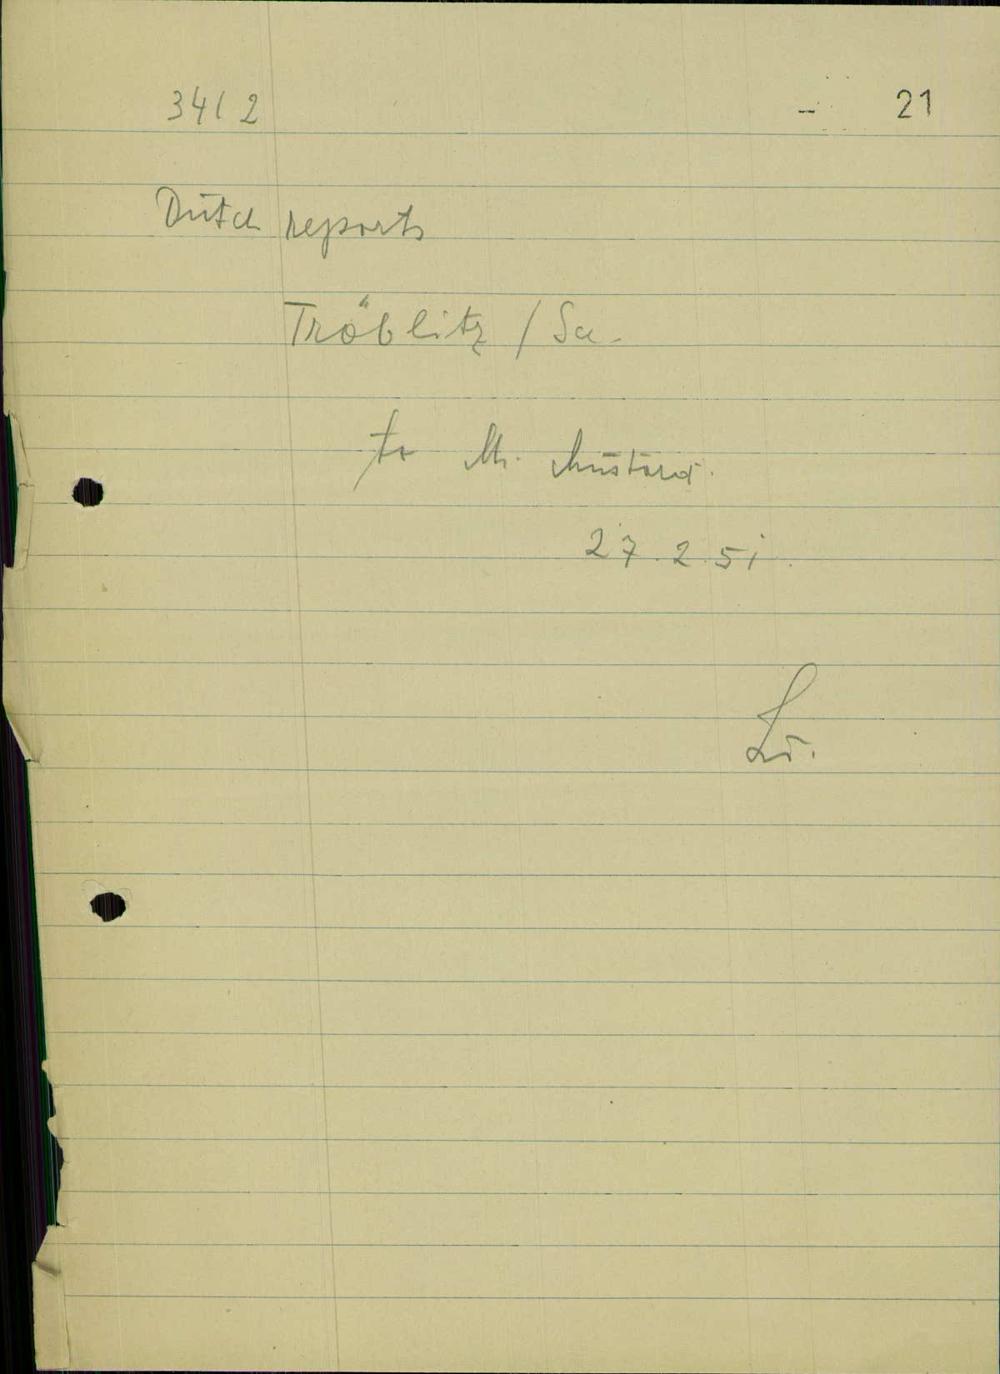 3412
21
Dutch reports
Tröblitz / Sa.
to Mr. Mustard.
27.2.51.
Lö.